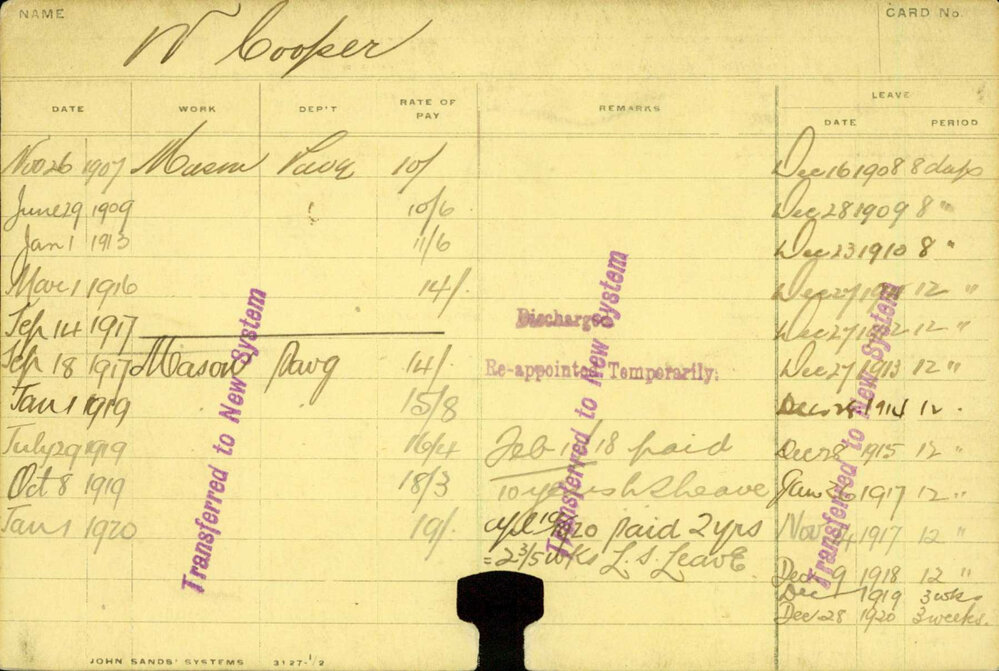 NAME
W Cooper
CARD No.
DATE WORK DEP'T RATE OF PAY REMARKS LEAVE
DATE PERIOD
Nov 26 1907 Mason Pavg 10/ Dec 16 1908 8 days
June 29 1909 " 10/6 Dec 28 1909 8 "
Jan 1 1913 11/6 Dec 23 1910 8 "
Mar 1 1916 14/- Dec 27 1911 12 "
Sep 14 1917 Discharged Dec 27 1912 12 "
Sep 18 1917 Mason Pavg 14/- Re-appointed Temporarily. Dec 27 1913 12 "
Jan 1 1919 15/8 Dec 1914 12 .
July 29 1919 16/4 Feb 18 paid Dec 28 1915 12 "
Oct 8 1919 18/3 10 L S leave Jan 1917 12 "
Jan 1 1920 19/- 1920 paid 2 yrs Nov 1917 12 "
= 2 3/5 wks L.S. Leave
Dec 9 1918 12 "
Dec 1919 3 wks
Dec 28 1920 3 weeks.
Transferred to New System
Transferred to New System
Transferred to New System
JOHN SANDS' SYSTEMS 3127-1/2